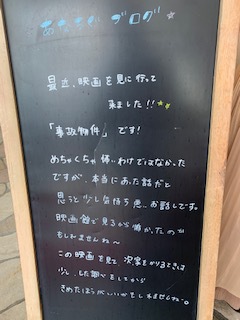 ブログ
最近、映画を見に行って
来ました!!
「事故物件」です!
めちゃくちゃ怖いわけではなかった
ですが、本当にあった話だと
思うと少し気持ち悪いお話しです。
映画館で見るから怖かったのか
もしれませんね〜
この映画を見て次家をかりるときは
少し、した調べをしてから
きめたほうがいいかもしれませんね。